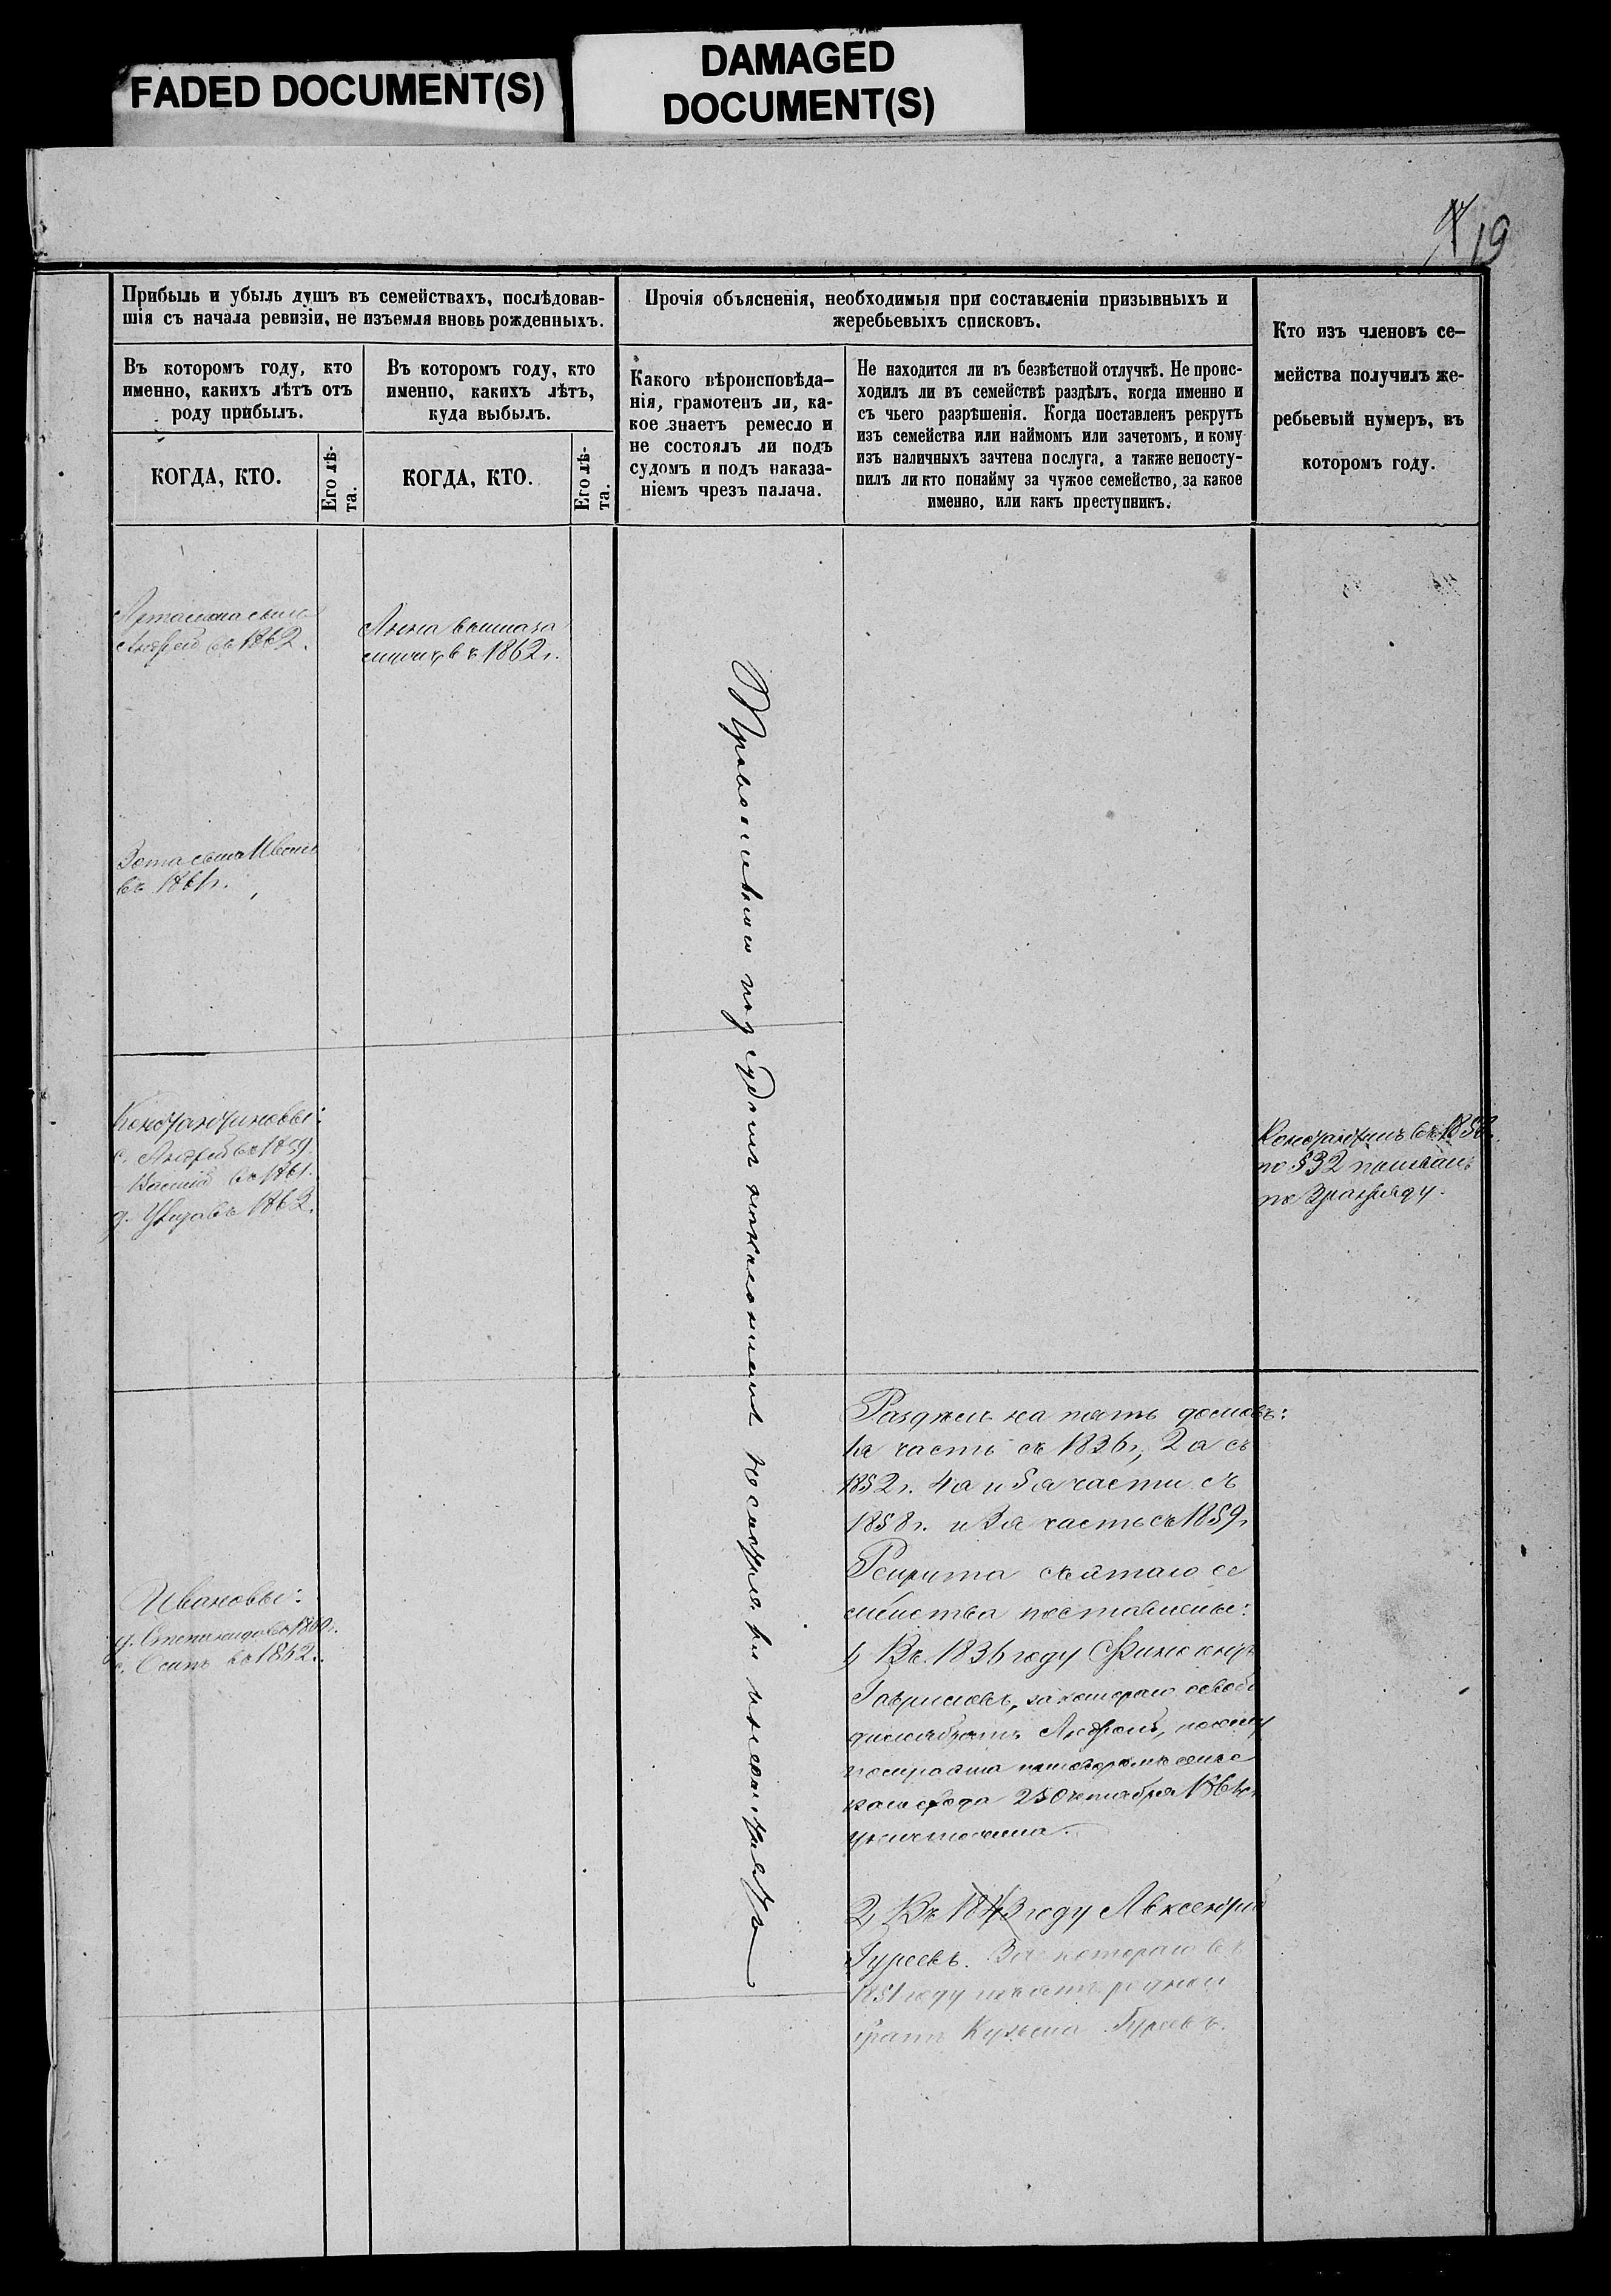 FADED DOCUMENT(S)
DAMAGED
DOCUMENT(S)
19
Прибыль и убыль душъ въ семействахъ, послѣдовав-
шія съ начала ревизіи, не изъемля вновь рожденныхъ.
Прочія объясненія, необходимыя при составленіи призывныхъ и
жеребьевыхъ списковъ.
Кто изъ членовъ се-
мейства получилъ же-
ребьевый нумеръ, въ
которомъ году.
Въ которомъ году, кто
именно, какихъ лѣтъ отъ
роду прибылъ.
Въ которомъ году, кто
именно, какихъ лѣтъ,
куда выбылъ.
Какого вѣроисповѣда-
нія, грамотенъ ли, ка-
кое знаетъ ремесло и
не состоялъ ли подъ
судомъ и подъ наказа-
ніемъ чрезъ палача.
Не находится ли въ безвѣстной отлучкѣ. Не проис-
ходилъ ли въ семействѣ раздѣлъ, когда именно и
съ чьего разрѣшенія. Когда поставленъ рекрутъ
изъ семейства или наймомъ или зачетомъ, и кому
изъ наличныхъ зачтена послуга, а также непосту-
пилъ ли кто понайму за чужое семейство, за какое
именно, или какъ преступникъ.
КОГДА, КТО.
Его лѣ-
та.
КОГДА, КТО.
Его лѣ-
та.
Артамона сынъ
Андрей въ 1862.
Анна вышла за
въ 1862 г.
Зота сынъ Иванъ
въ 1861 г.
Константиновы:
с. Андрей въ 1859.
Василій въ 1861.
д. 1862.
Константинъ въ 1858
по § 32
къ 3 разряду.
Православные под судом
Раздѣлъ на пять домовъ:
1я часть съ 1836 г, 2я съ
1852 г. 4я и 5я части съ
1858 г. и 3я часть съ 1859 г
Рекрута съ этого се
мейства поставлены:
1, Въ 1836 году
Гавриловъ, за котораго
братъ Андрей,
схода 25 Октября
уничтожена.
2, Въ 1843 году Авксентій
Гуреевъ. За котораго въ
1851 году родной
братъ Кузьма Гуреевъ.
Ивановы:
д. Степанида въ 1860 г.
с. Осипъ въ 1862.